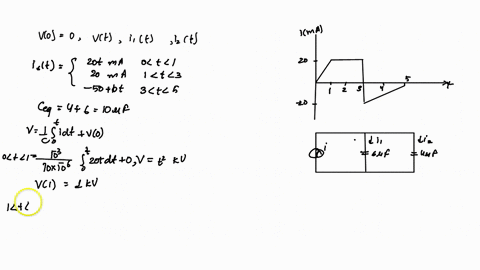 V(0) = 0, V(t), i₁(t), i₂(t)
is(t) = { 20t mA 0<t<1
20 mA 1<t<3
-50+bt 3<t<5
Ceq = 4+6 = 10μF
V = 1/C ∫₀ᵗ idt + V(0)
0<t<1 = 10⁻³/(10×10⁻⁶) ∫₀ᵗ 20t dt + 0, V = t² kV
V(1) = 1 kV
1<t<
i(mA)
20
1 2 3 4 5
-20
i
↓i₁
6μF
↓i₂
4μF